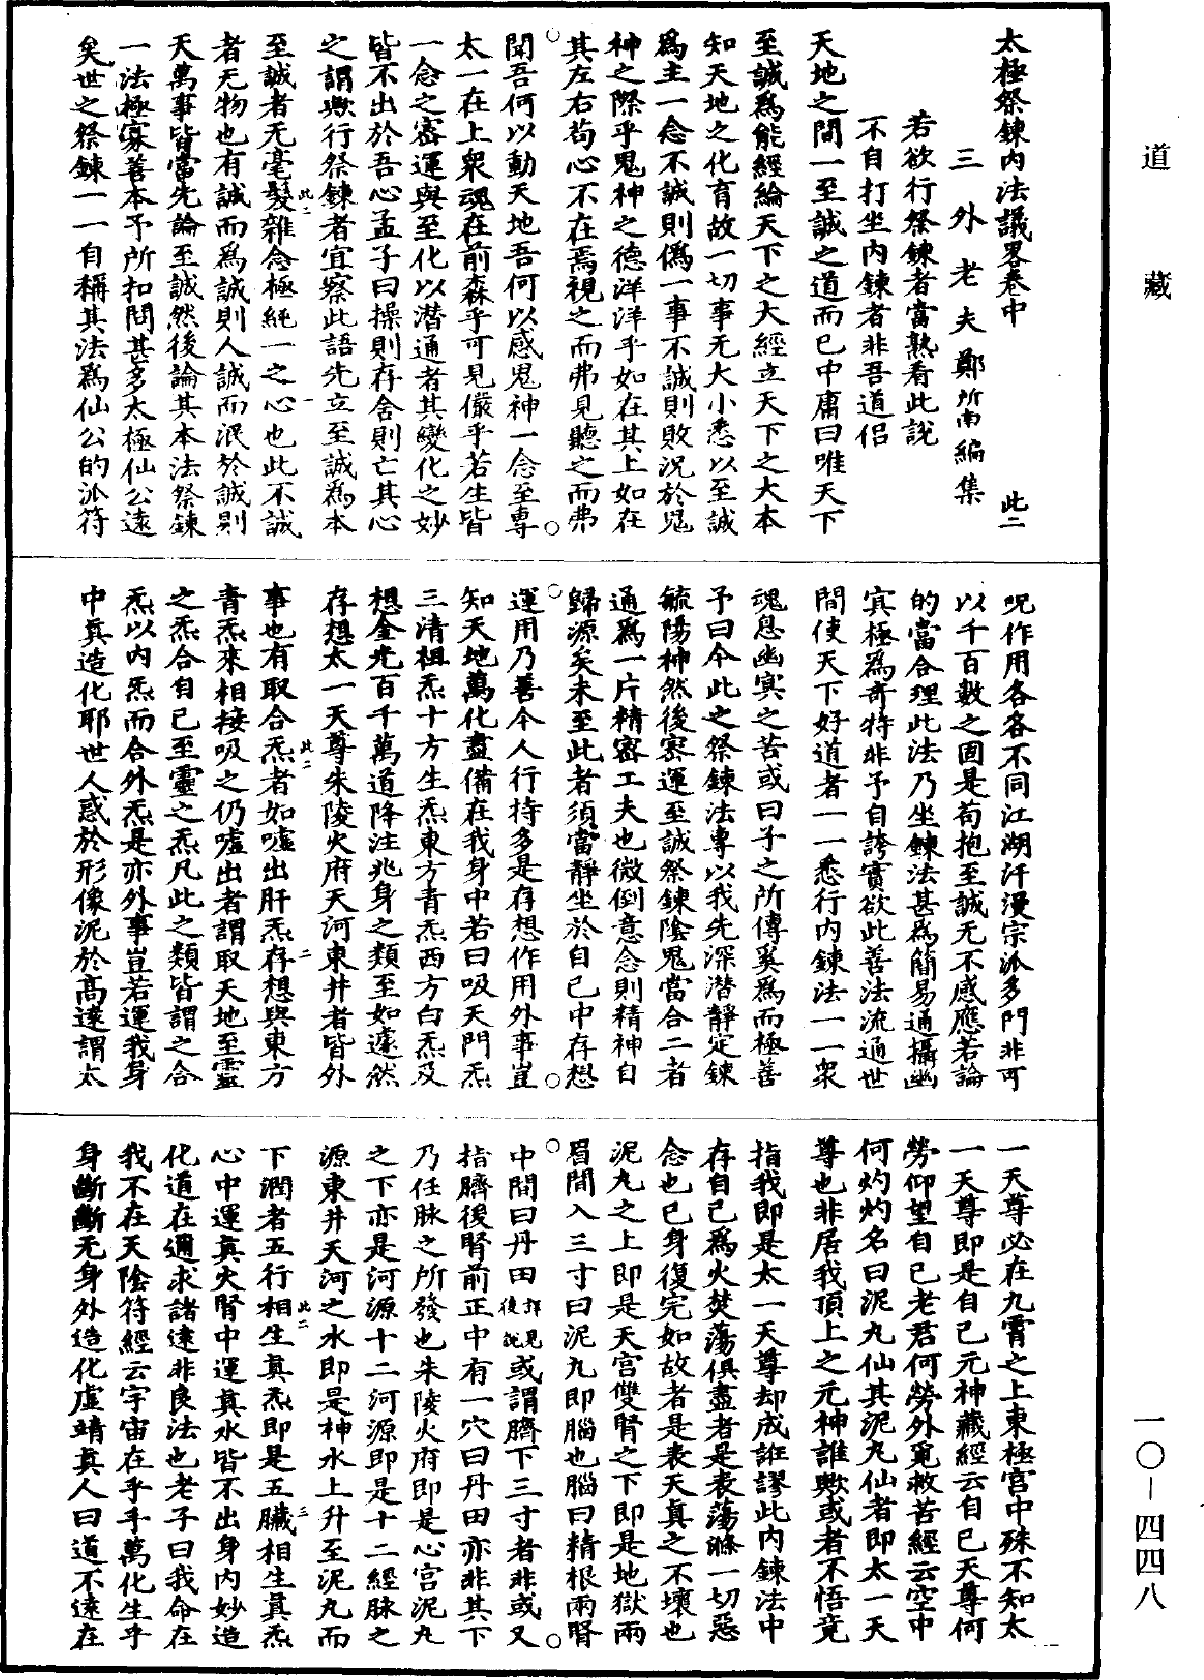 太極祭鍊內法議畧卷中　此二
三外老夫鄭所南編集
若欲行祭鍊者當熟看此說
不自打坐內鍊者非吾道侣
天地之間一至誠之道而已中庸曰唯天下
至誠為能經綸天下之大經立天下之大本
知天地之化育故一切事无大小悉以至誠
為主一念不誠則僞一事不誠則敗况於鬼
神之際乎鬼神之德洋洋乎如在其上如在
其左右苟心不在焉視之而弗見聽之而弗
聞吾何以動天地吾何以感鬼神一念至專
太一在上衆魂在前森乎可見儼乎若生皆
一念之密運與至化以潜通者其變化之妙
皆不出於吾心孟子曰操則存舍則亡其心
之謂歟行祭鍊者宜察此語先立至誠為本
至誠者无毫髮雜念極純一之心也此不誠
者无物也有誠而為誠則人誠而泯於誠則
天萬事皆當先論至誠然後論其本法祭鍊
一法極寡善本予所扣問甚多太極仙公遠
矣世之祭鍊一一自稱其法為仙公的派符
此二　一
呪作用各各不同江湖汗漫宗派多門非可
以千百數之固是苟抱至誠无不感應若論
的當合理此法乃坐鍊法甚為簡易通攝幽
冥極為奇特非予自誇實欲此善法流通世
間使天下好道者一一悉行內鍊法一一衆
魂息幽冥之苦或曰子之所傳奚為而極善
予曰今此之祭鍊法專以我先深潜靜定鍊
毓陽神然後密運至誠祭鍊陰鬼當合二者
通為一片精密工夫也微倒意念則精神自
歸源矣未至此者須當靜坐於自己中存想
運用乃善今人行持多是存想作用外事豈
知天地萬化盡備在我身中若曰吸天門炁
三清祖炁十方生炁東方青炁西方白炁及
想金光百千萬道降注兆身之類至如遽然
存想太一天尊朱陵火府天河東井者皆外
事也有取合炁者如噓出肝炁存想與東方
青炁來相接吸之仍噓出者謂取天地至靈
之炁合自己至靈之炁凡此之類皆謂之合
炁以內炁而合外炁是亦外事豈若運我身
中真造化耶世人惑於形像泥於高遠謂太
此二　二
一天尊必在九霄之上東極宮中殊不知太
一天尊即是自己元神藏經云自己天尊何
勞仰望自己老君何勞外覓救苦經云空中
何灼灼名曰泥丸仙其泥丸仙者即太一天
尊也非居我頂上之元神誰歟或者不悟竟
指我即是太一天尊却成誑謬此內鍊法中
存自己為火焚蕩俱盡者是表蕩滌一切惡
念也已身復完如故者是表天真之不壞也
泥丸之上即是天宮雙腎之下即是地獄兩
眉間入三寸曰泥丸即腦也腦曰精根兩腎
中間曰丹田詳見後說或謂臍下三寸者非或又
指臍後腎前正中有一穴曰丹田亦非其下
乃任脉之所發也朱陵火府即是心宮泥丸
之下亦是河源十二河源即是十二經脉之
源東井天河之水即是神水上升至泥丸而
下潤者五行相生真炁即是五臟相生真炁
心中運真火腎中運真水皆不出身內妙造
化道在邇求諸遠非良法也老子曰我命在
我不在天陰符經云宇宙在乎手萬化生乎
身斷斷无身外造化虛靖真人曰道不遠在
此二　三
道藏
一〇—四四八